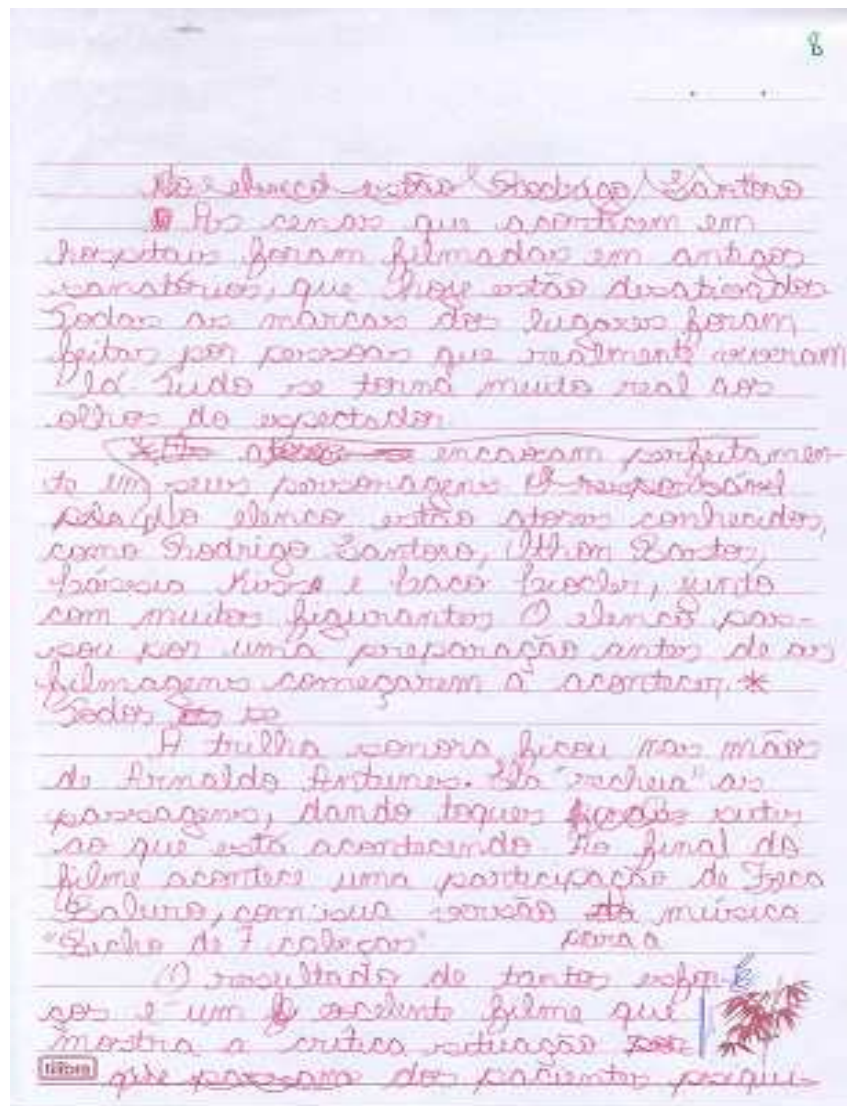 8
No elenco estão Rodrigo Santoro
As cenas que acontecem em
hospitais foram filmadas em antigos
sanatórios, que hoje estão desativados
Todas as marcas dos lugares foram
feitas por pessoas que realmente viveram
lá. Tudo se torna muito real aos
olhos do espectador.
* Os atores se encaixam perfeitamen-
te em seus personagens O responsável
pela No elenco estão atores conhecidos,
como Rodrigo Santoro, Othon Bastos,
Cássia Kiss e Caco Ciocler, junto
com muitos figurantes O elenco pas-
sou por uma preparação antes de as
filmagens começarem a acontecer. *
Todos se
A trilha sonora ficou nas mãos
de Arnaldo Antunes. Ela "recheia" as
passagens, dando toques sutis
ao que está acontecendo. No final do
filme acontece uma participação de Zeca
Baleiro, com sua versão da música
"Bicho de 7 cabeças" para a
O resultado de tantos esfor-
ços é um excelente filme que
mostra a crítica situação
tilibra
que passam dos pacientes psiqui-